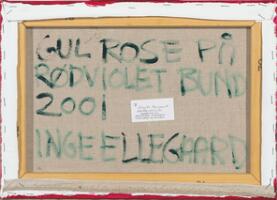 GUL ROSE PÅ
RØDVIOLET BUND
2001
INGE ELLEGAARD